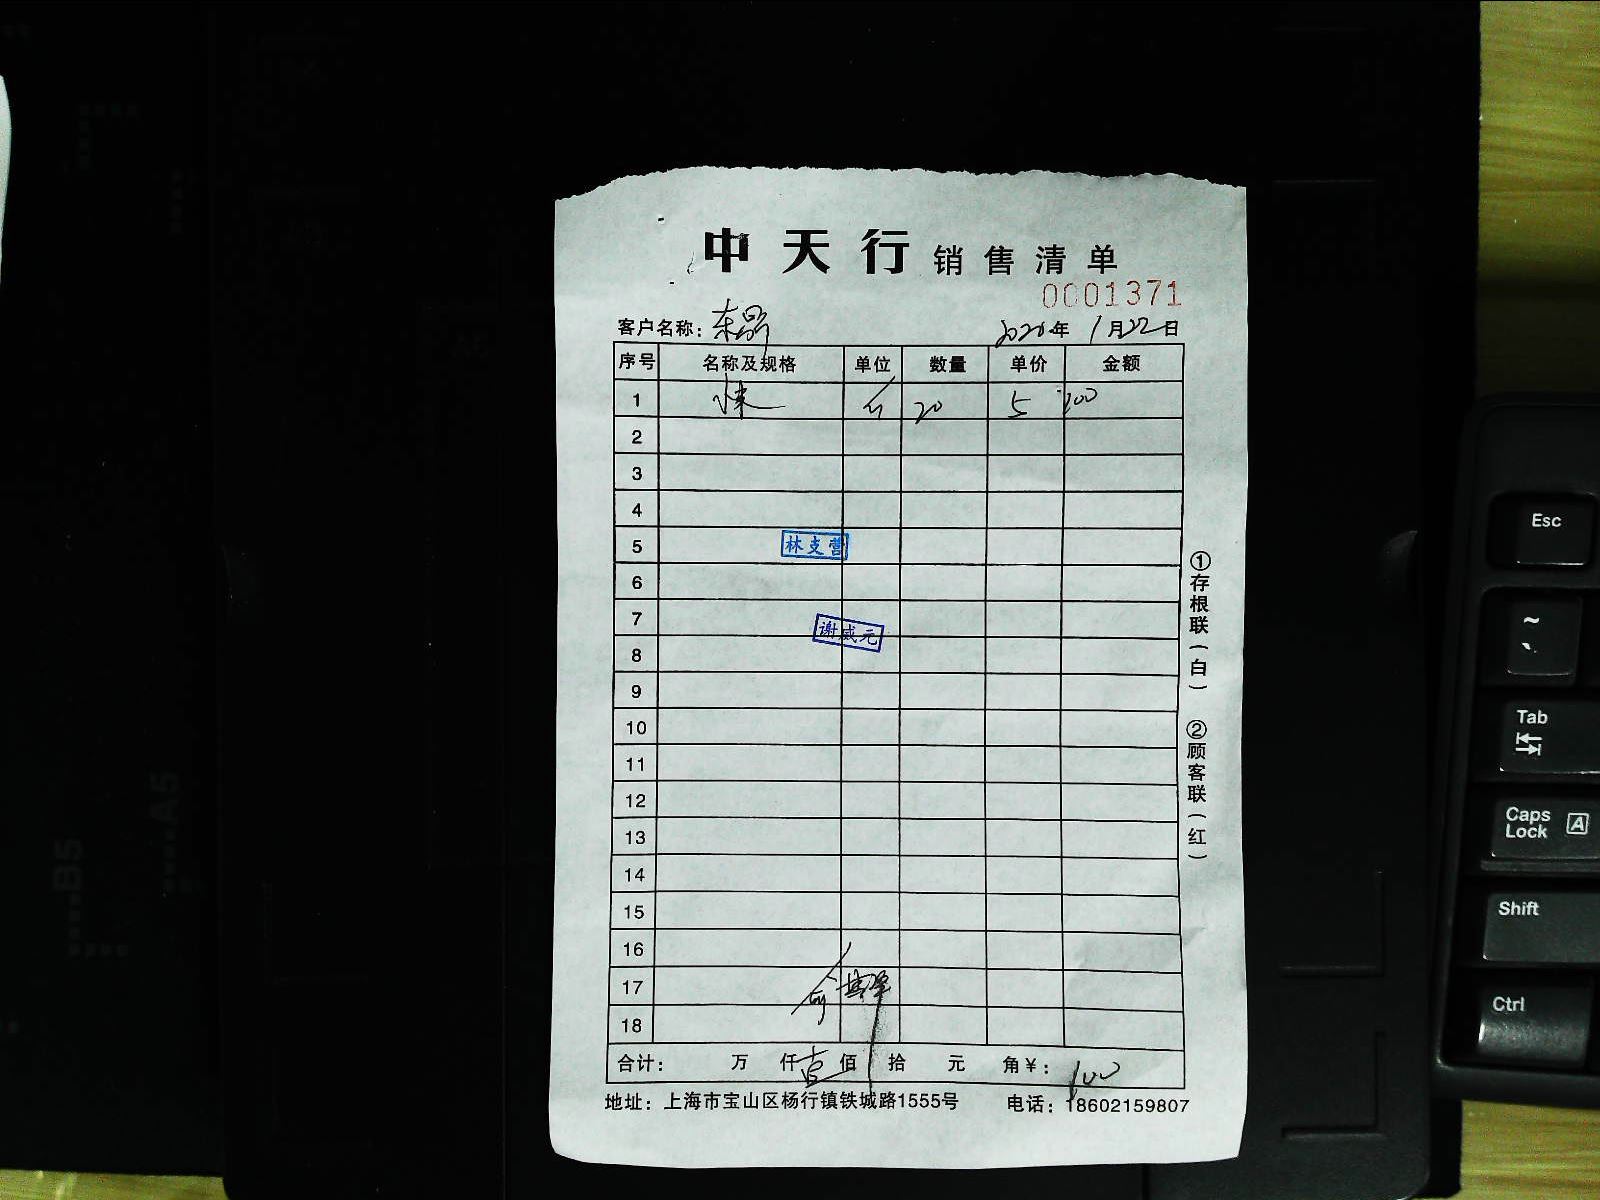 中天行 销售清单
0001371
客户名称： 2020年 1月22日
序号 名称及规格 单位 数量 单价 金额
1 20 5 100
2
3
4
5 林支营
6
7 谢威元
8
9
10
11
12
13
14
15
16
17
18
合计： 万 仟 壹 佰 拾 元 角￥： 100
地址：上海市宝山区杨行镇铁城路1555号 电话：18602159807
①存根联（白）
②顾客联（红）
Esc
~
Tab
Caps Lock A
Shift
Ctrl
B5
A5